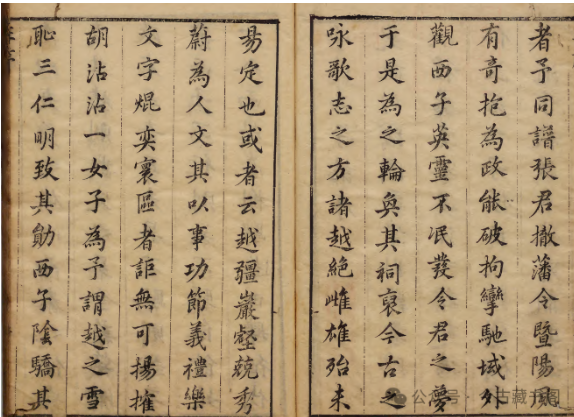 者予同譜張君撤藩令暨陽風
有奇抱為政能破拘攣馳域外
觀西子英靈不泯發令君之夢
于是為之輪奐其祠裒今古之
咏歌志之方諸越絕雌雄殆未
易定也或者云越疆巖壑競秀
蔚為人文其以事功節義禮樂
文字焜奕寰區者詎無可揚搉
胡沾沾一女子為予謂越之雪
恥三仁明致其勛西子陰驕其
公众号
古藏开阁